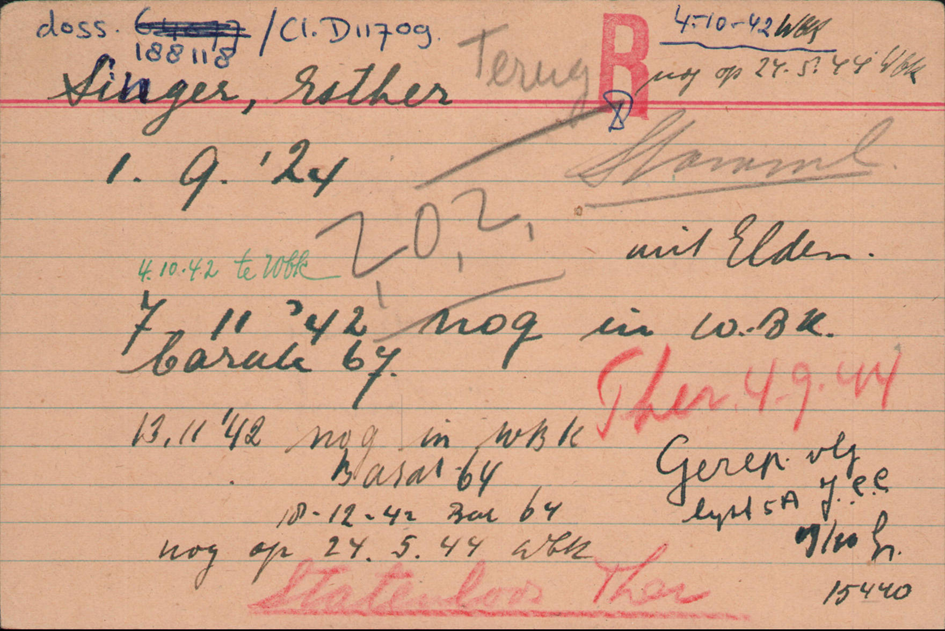 doss. 188118 / Cl. D11709.
R
4-10-42 Wbk
nog op 24.5.44 Wbk
Terug
Singer, Esther
1. 9. '24
Stamml.
202.
mit Elden.
4.10.42 te Wbk
7 11 '42 nog in W.BK.
barak 67.
Ther. 4.9.44
13.11 '42 nog in WBK
Barak 64
Gerep. vlg
lijst 5A J.C.C
18-12-42 Bar 64
nog op 24.5.44 Wbk
Statenloos Ther
15440